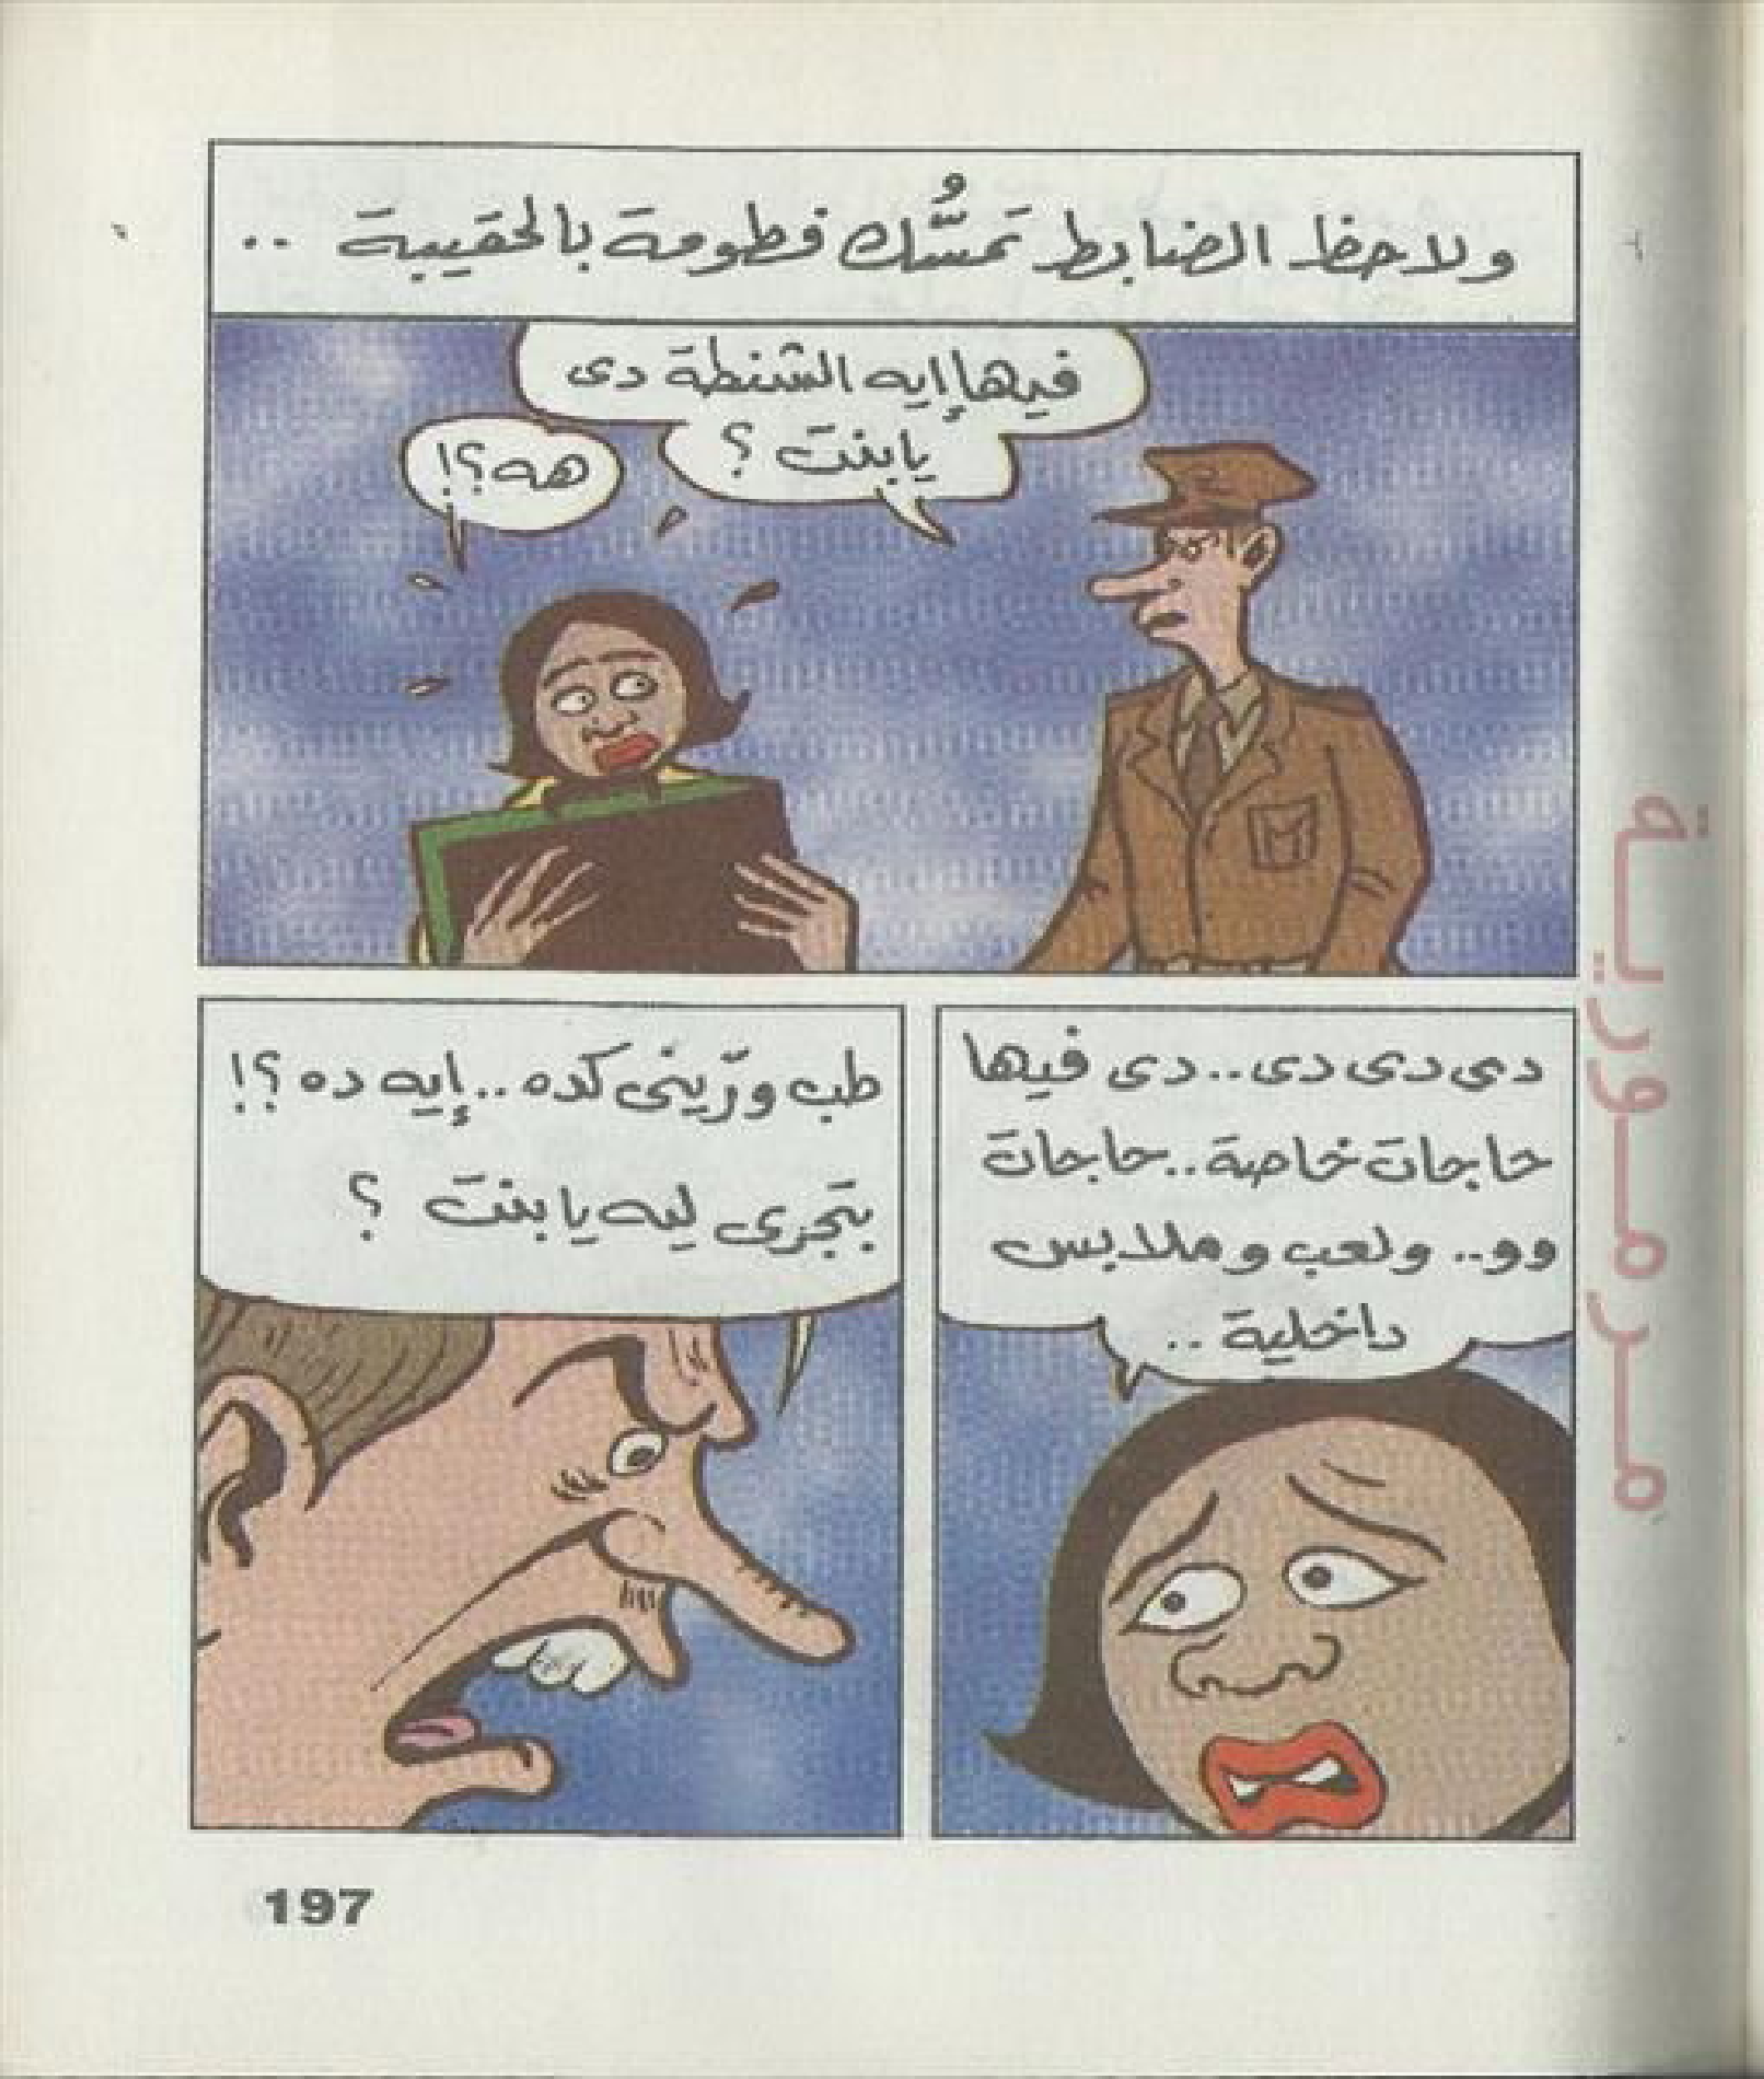 ولاحظ الضابط تَمسُّك فطومة بالحقيبة ..
فيها إيه الشنطة دى
يا بنت ؟
هه ؟!
دى دى دى .. دى فيها
حاجات خاصة .. حاجات
وو .. ولعب وملابس
داخلية ..
طب ورّينى كده .. إيه ده ؟!
بتجرى ليه يا بنت ؟
197
مرمورية